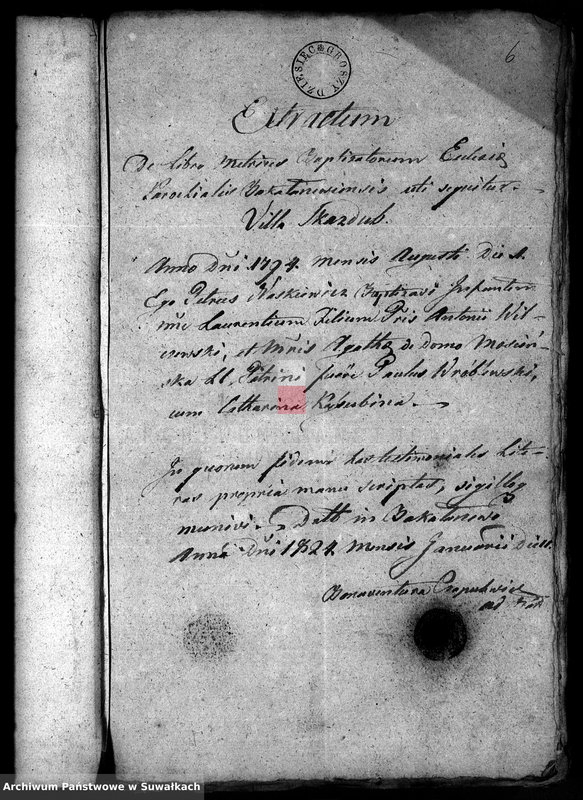 6
DZIESIĘC GROSZY
Extractum
De libro Metrices Baptizatorum Ecclesiæ
Parochialis Bakałarzeviensis uti sequitur.
Villa Skazdub.
Anno Dni 1794. mensis Augusti Die
Ego Petrus Baptizavi Infantem
nñe Laurentium Filium Pñs Antonii Wil-
czewski, et Mñis Agathæ de domo
ska LL. Patrini fuêre Paulus Wróblewski,
cum Catharina
In quorum fidem has testimoniales Lite-
ras propria manu scriptas, sigillo
munivi. Datt in Bakałarzewo
Anno Dñi 1824. mensis Januarii Die
Bonaventura
Archiwum Państwowe w Suwałkach